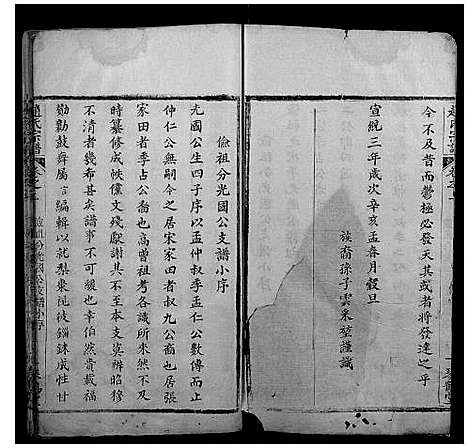 今不及昔而鬱極必發天其或者將發達之乎
宣統三年歲次辛亥孟春月穀旦
族裔孫子雲采堃謹識
儉祖分光國公支譜小序
光國公生四子序以孟仲叔季孟仁公數傳而止
仲仁公無嗣今之居宋家田者叔九公裔也居張
家田者季占公裔也高曾祖考各識所來然不及
時纂修成帙儻文殘獻謝其不至本支莫辨昭穆
不清者幾布甚矣譜事不可緩也幸伯然貴載福
勷勸鼓舞屬言編輯以就梨棗視彼錙銖成性甘
趙氏宗譜